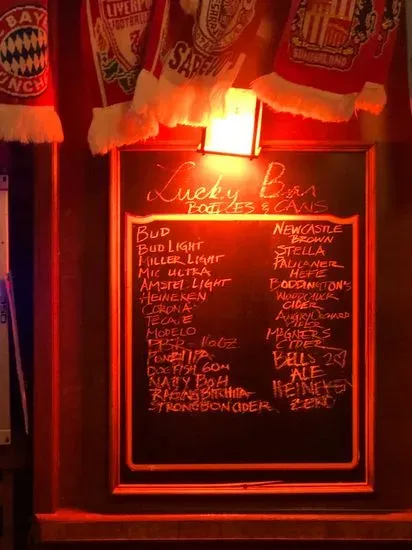 BAYE
ÜNCHE
LIVERP
FOOTBALL
SUNDERLAND
Lucky Bar
BOTTLES & CANS
BUD
BUD LIGHT
MILLER LIGHT
MIC ULTRA
AMSTEL LIGHT
HEINEKEN
CORONA
TECATE
MODELO
PBR - 16OZ
IPA
DOGFISH 60M
NATTY BOH
RAGING BITCH IPA
STRONGBOW CIDER
NEWCASTLE
BROWN
STELLA
PAULANER
HEFE
BODDINGTON'S
WOODCHUCK
CIDER
ANGRY ORCHARD
CIDER
MAGNERS
CIDER
BELLS 2♡
ALE
HEINEKEN
ZERO